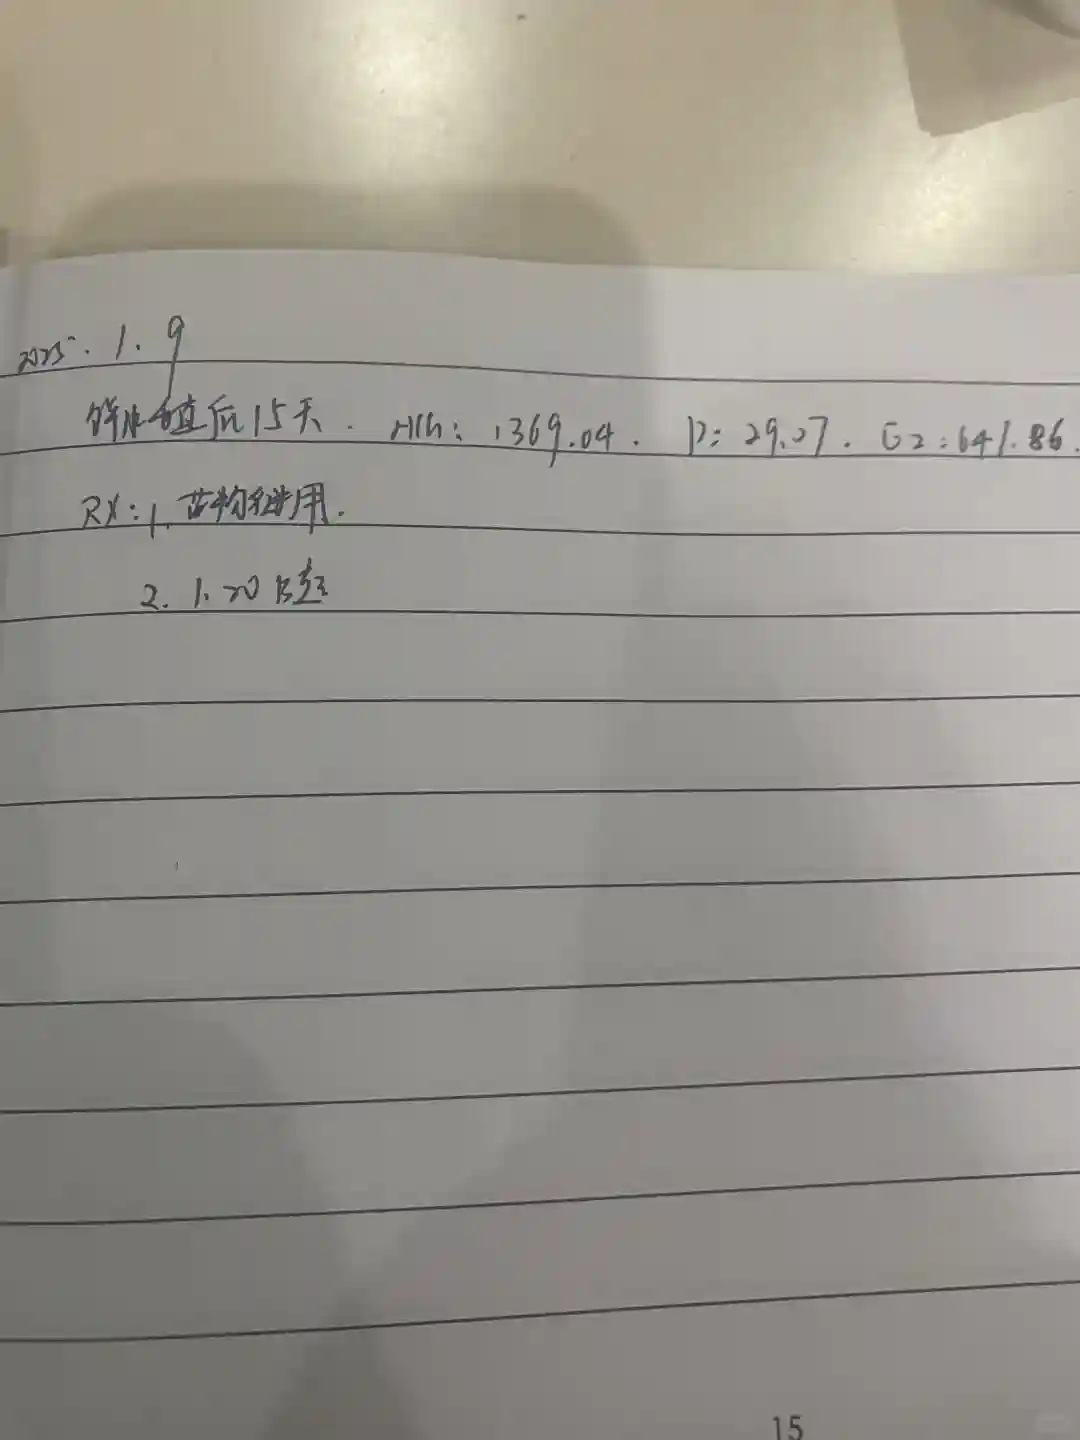 2025.1.9
鲜胚植后15天. HCG: 1369.04. P: 29.27. E2: 641.86.
RX: 1. 药物继用.
2. 1.20 B超
15